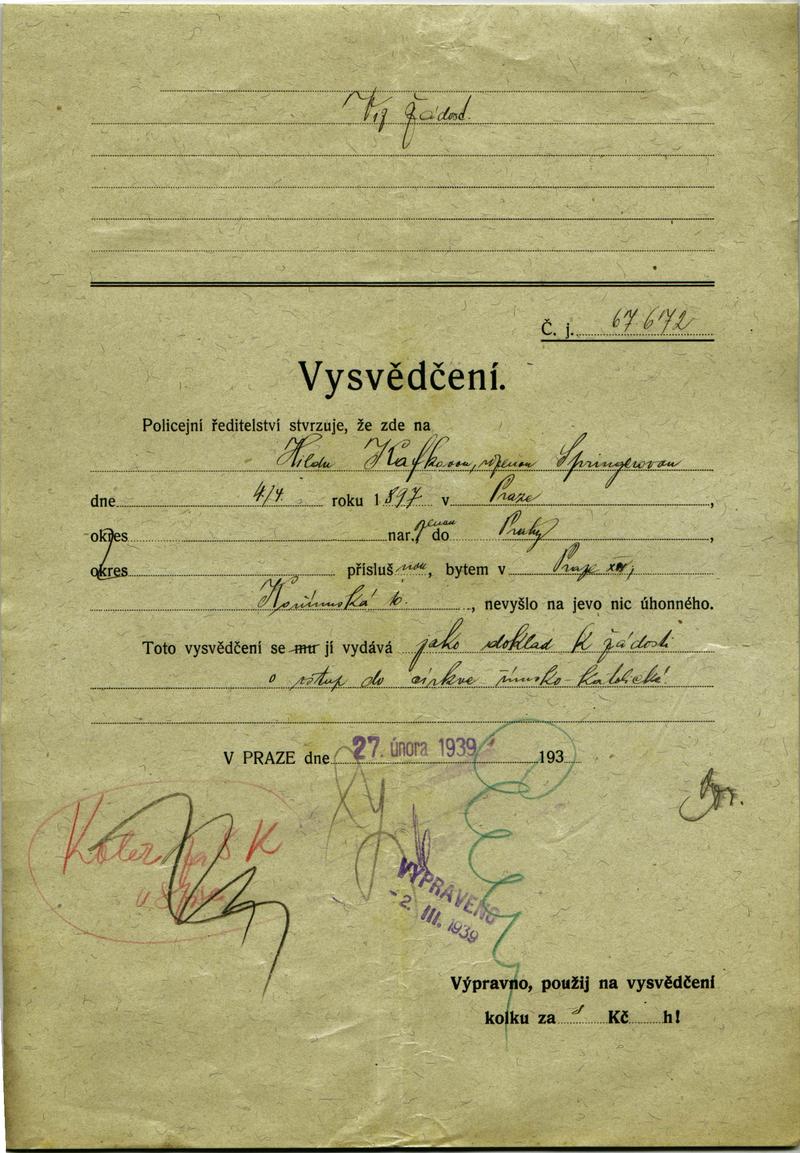 Viz žádost.
Č. j. 67.672
Vysvědčení.
Policejní ředitelství stvrzuje, že zde na
Hildu Kafkovou, rozenou Springerovou
dne 4/4 roku 1897 v Praze,
okres nar. do Prahy,
okres příslušnou, bytem v Praze XII,
Kouřimská 16., nevyšlo na jevo nic úhonného.
Toto vysvědčení se mu jí vydává jako doklad k žádosti
o vstup do církve římsko-katolické.
V PRAZE dne 27. února 1939 193
Kolek za 8 K
VYPRAVENO
-2. III. 1939
Výpravno, použij na vysvědčení
kolku za 8 Kč h!